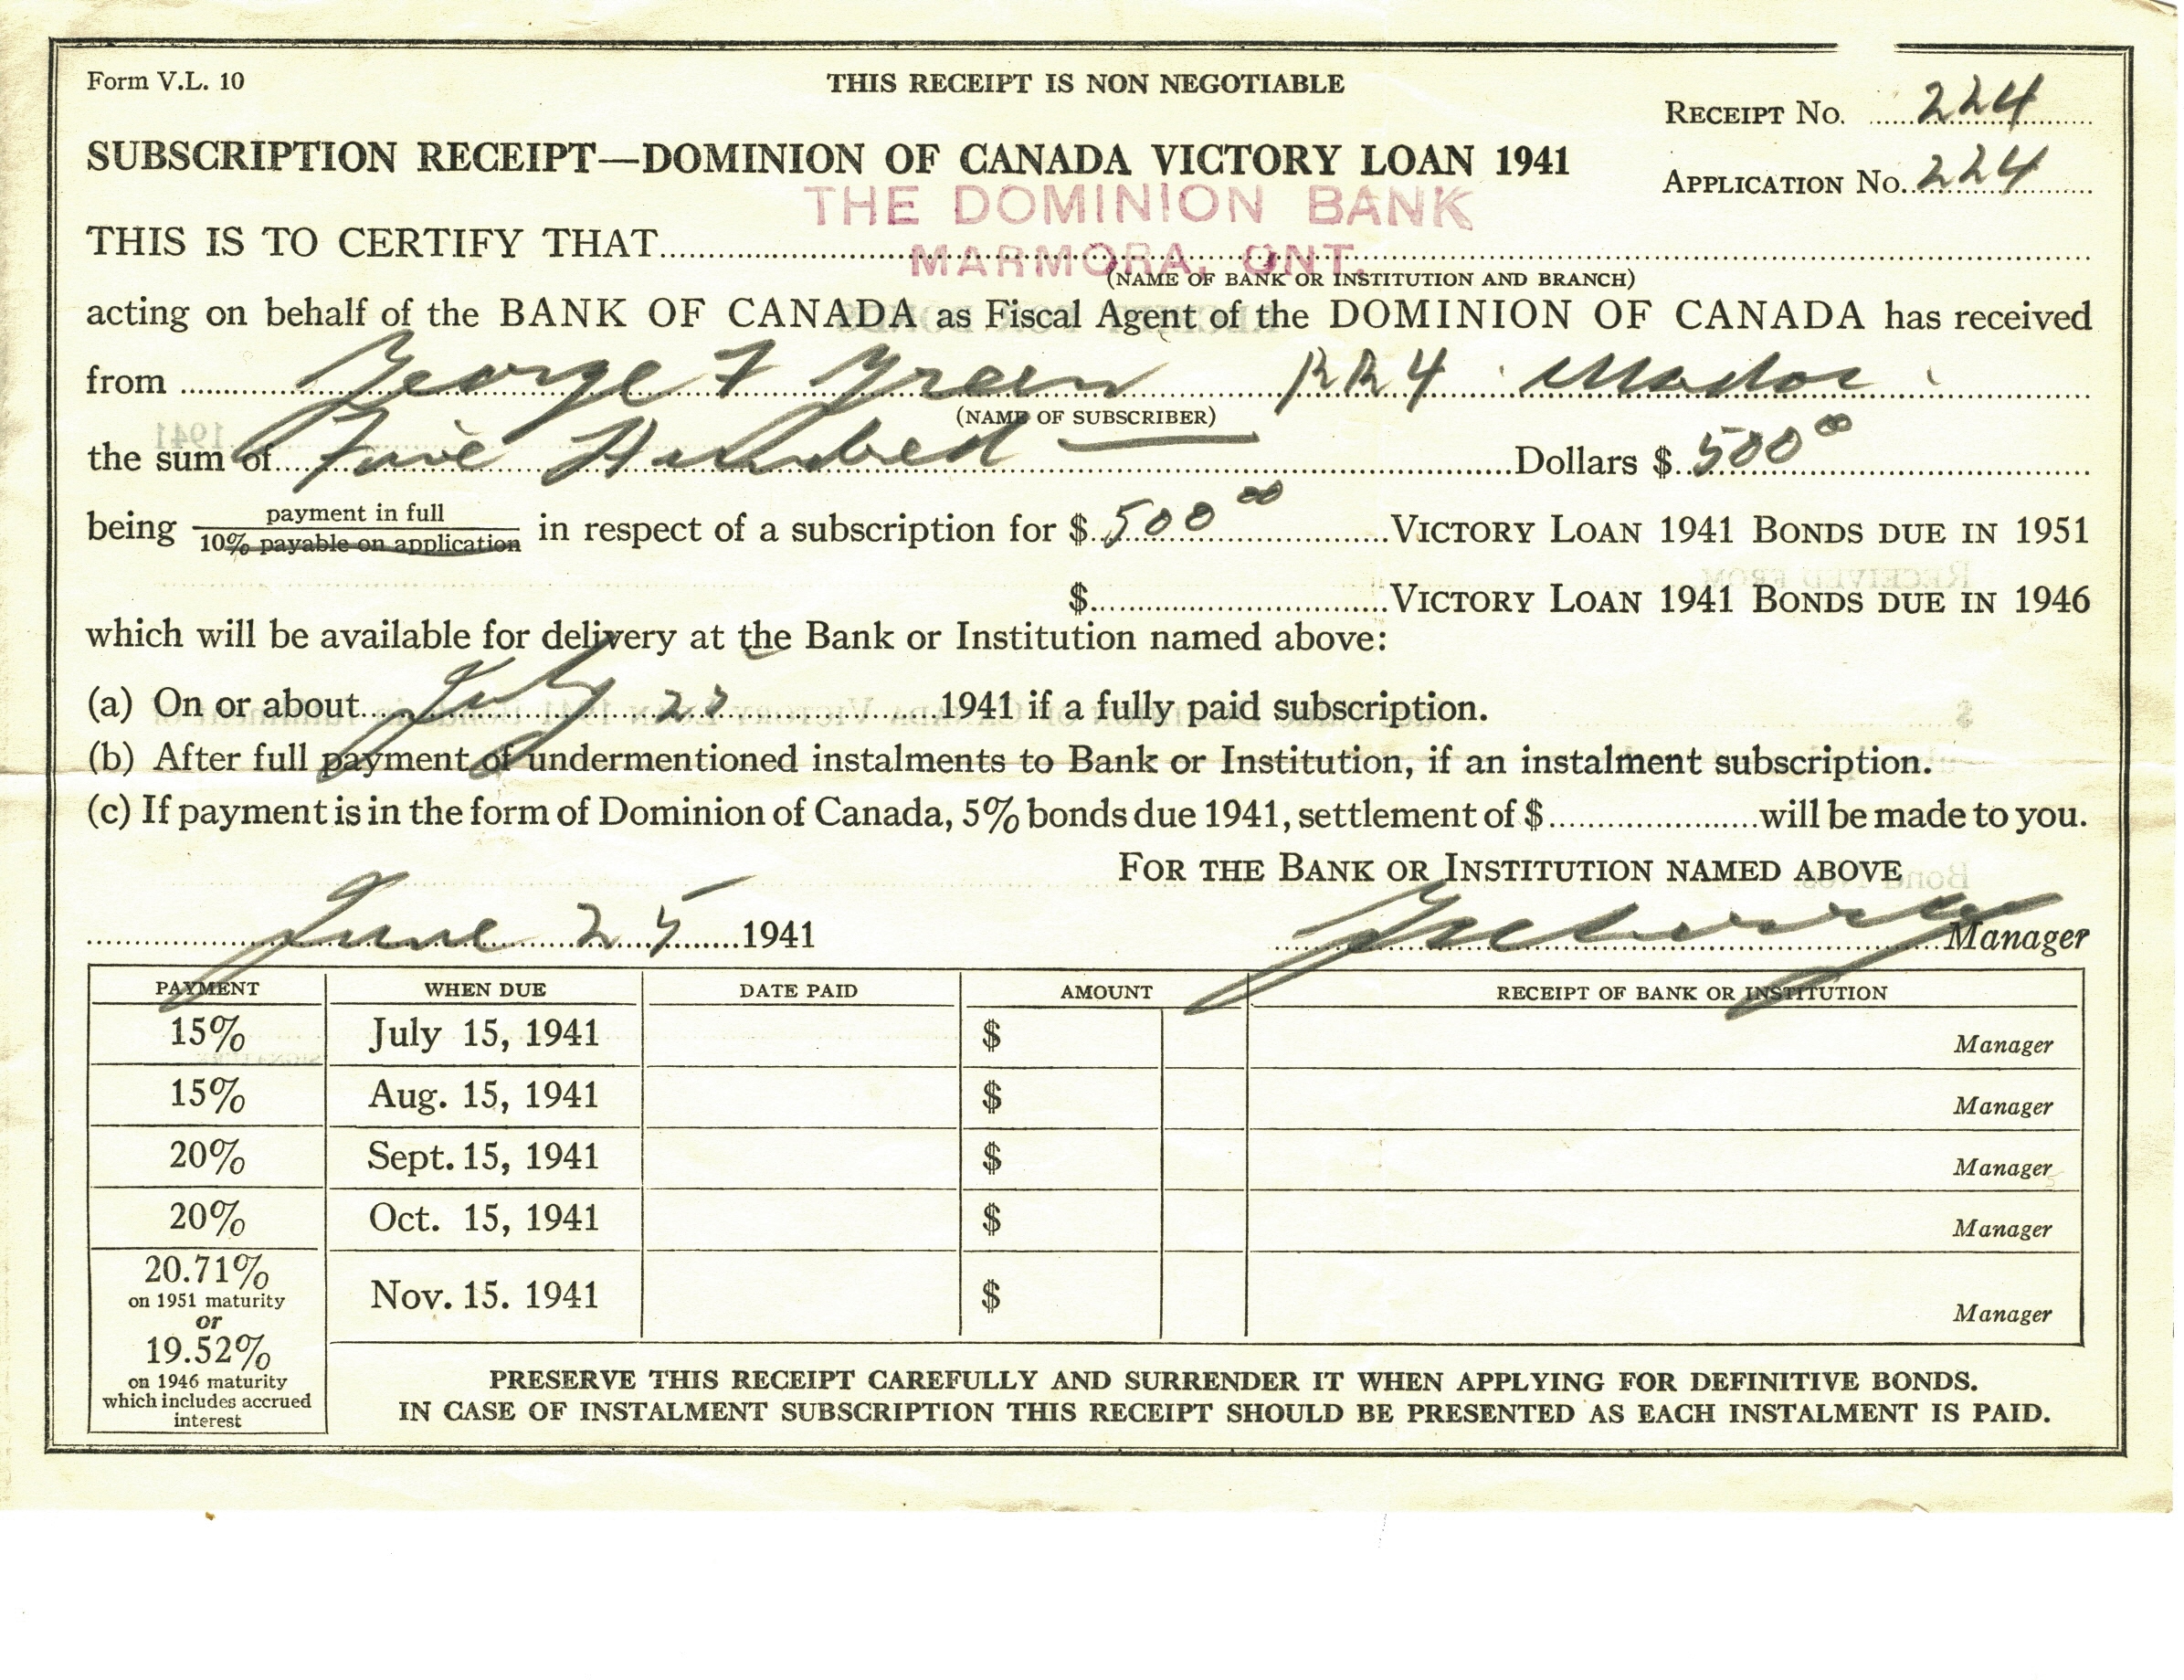 Form V.L. 10
THIS RECEIPT IS NON NEGOTIABLE
RECEIPT No. 224
SUBSCRIPTION RECEIPT—DOMINION OF CANADA VICTORY LOAN 1941
APPLICATION No. 224
THE DOMINION BANK
THIS IS TO CERTIFY THAT
MARMORA, ONT.
(NAME OF BANK OR INSTITUTION AND BRANCH)
acting on behalf of the BANK OF CANADA as Fiscal Agent of the DOMINION OF CANADA has received
from George F Green RR4 Madoc
(NAME OF SUBSCRIBER)
the sum of Five Hundred Dollars $ 500 00
being payment in full
10% payable on application
in respect of a subscription for $ 500 00 VICTORY LOAN 1941 BONDS DUE IN 1951
$ VICTORY LOAN 1941 BONDS DUE IN 1946
which will be available for delivery at the Bank or Institution named above:
(a) On or about July 1941 if a fully paid subscription.
(b) After full payment of undermentioned instalments to Bank or Institution, if an instalment subscription.
(c) If payment is in the form of Dominion of Canada, 5% bonds due 1941, settlement of $ will be made to you.
FOR THE BANK OR INSTITUTION NAMED ABOVE
June 25 1941 Manager
PAYMENT WHEN DUE DATE PAID AMOUNT RECEIPT OF BANK OR INSTITUTION
15% July 15, 1941 $ Manager
15% Aug. 15, 1941 $ Manager
20% Sept. 15, 1941 $ Manager
20% Oct. 15, 1941 $ Manager
20.71%
on 1951 maturity
or
19.52%
on 1946 maturity
which includes accrued
interest
Nov. 15. 1941 $ Manager
PRESERVE THIS RECEIPT CAREFULLY AND SURRENDER IT WHEN APPLYING FOR DEFINITIVE BONDS.
IN CASE OF INSTALMENT SUBSCRIPTION THIS RECEIPT SHOULD BE PRESENTED AS EACH INSTALMENT IS PAID.